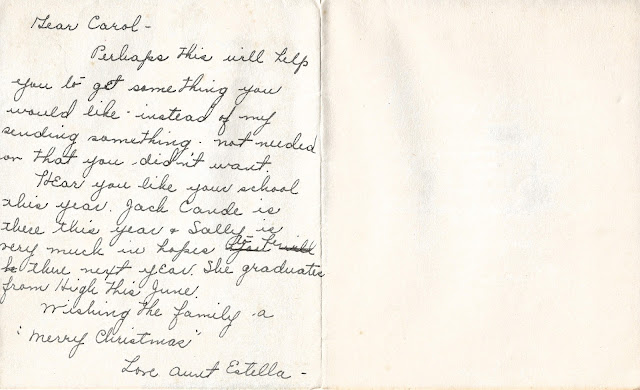 Dear Carol -
Perhaps this will help
you to get something you
would like - instead of my
sending something - not needed
or that you didn't want.
Hear you like your school
this year. Jack Cande is
there this year & Sally is
very much in hopes to be
there next year. She graduates
from High this June.
Wishing the family a
"Merry Christmas"
Love Aunt Estella -